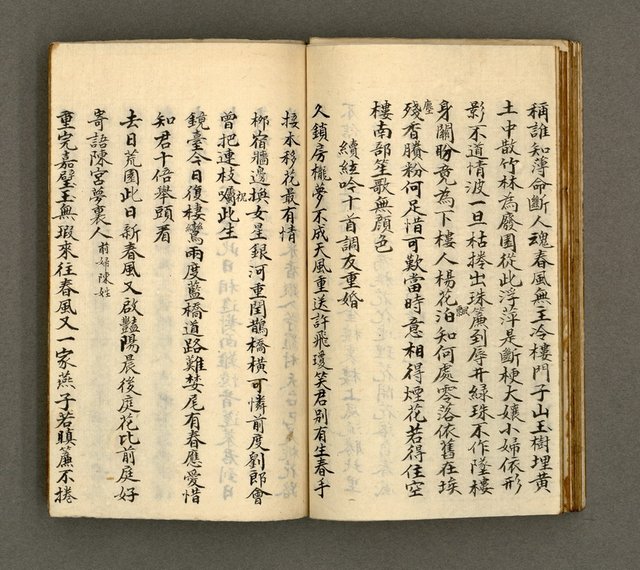 稱誰知薄命斷人魂春風無主冷樓門子山玉樹埋黃
土中散竹林為廢園從此浮萍是斷梗大孃小婦依形
影不道情波一旦枯捲出珠簾到辱井綠珠不作墜樓
身關盼竟為下樓人楊花飄泊知何處零落依舊在埃
塵殘香賸粉何足惜可歎當時意相得煙花若得住空
樓南部笙歌無顏色
續絃吟十首調友重婚
久鎖房櫳夢不成天風重送許飛瓊笑君別有生春手
接本移花最有情
柳宿牆邊換女星銀河重閏鵲橋橫可憐前度劉郎會
曾把連枝囑祝此生
鏡臺今日復棲鸞兩度藍橋道路難婪尾有春應愛惜
知君十倍舉頭看
去日荒園此日新春風又啟豔陽晨後庭花比前庭好
寄語陳宮夢裏人前婦陳姓
重完嘉璧玉無瑕來往春風又一家燕子若瞋簾不捲